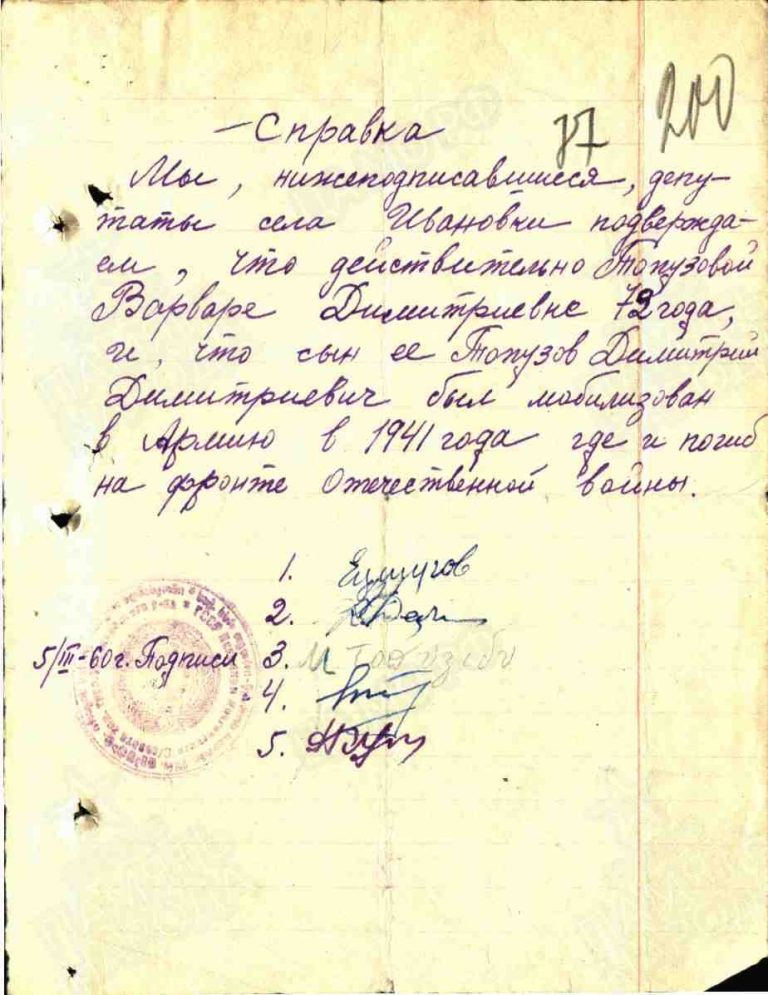 200
37
Справка
Мы, нижеподписавшиеся, депу-
таты села Ивановки подвержда-
ем, что действительно Топузовой
Варваре Димитриевне 72 года,
и, что сын ее Топузов Димитрий
Димитриевич был мобилизован
в Армию в 1941 года где и погиб
на фронте Отечественной войны.
1.
2.
5/III-60г. Подписи 3.
4.
5.